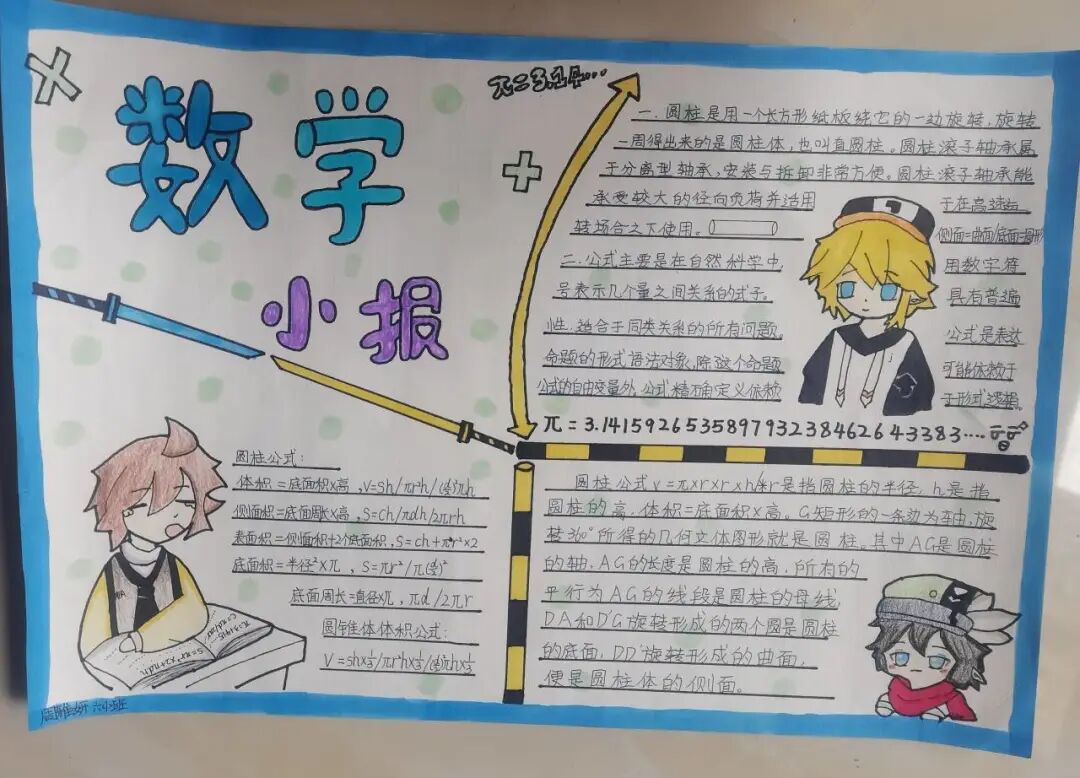 数学
小报
一.圆柱是用一个长方形纸板绕它的一边旋转,旋转
一周得出来的是圆柱体,也叫直圆柱。圆柱滚子轴承属
于分离型轴承,安装与拆卸非常方便。圆柱滚子轴承能
承受较大的径向负荷并适用 于在高速运
转场合之下使用。 侧面=曲面/底面=圆形
二.公式主要是在自然科学中 用数学符
号表示几个量之间关系的式子。 具有普遍
性.适合于同类关系的所有问题. 公式是表达
命题的形式语法对象,除这个命题 可能依赖于
公式的自由变量外.公式精确定义依赖 于形式逻辑。
π=3.141592653589793238462643383....
圆柱公式:
体积=底面积×高,V=Sh/πr²h/
侧面积=底面周长×高,S=ch/πdh/2πrh
表面积=侧面积+2个底面积,S=ch+πr²×2
底面积=半径²×π,S=πr²/
底面周长=直径×π,πd/2πr
圆锥体体积公式:
V=sh×⅓/πr²h×⅓/
圆柱公式v=π×r×r×h r是指圆柱的半径,h是指
圆柱的高.体积=底面积×高。G矩形的一条边为轴,旋
转360°所得的几何立体图形就是圆柱。其中AG是圆柱
的轴,AG的长度是圆柱的高,所有的
平行为AG的线段是圆柱的母线
DA和D'G旋转形成的两个圆是圆柱
的底面,DD'旋转形成的曲面,
便是圆柱体的侧面。